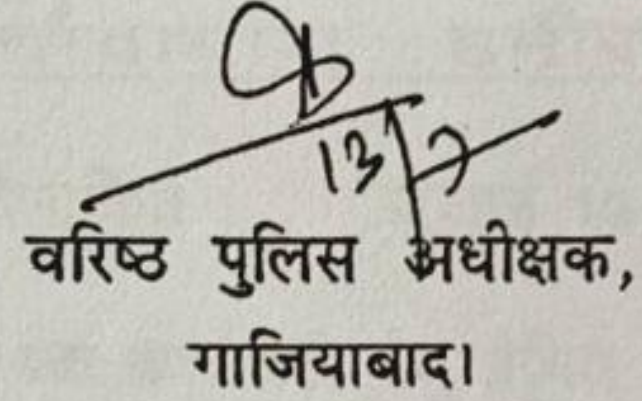 13/7
वरिष्ठ पुलिस अधीक्षक,
गाजियाबाद।